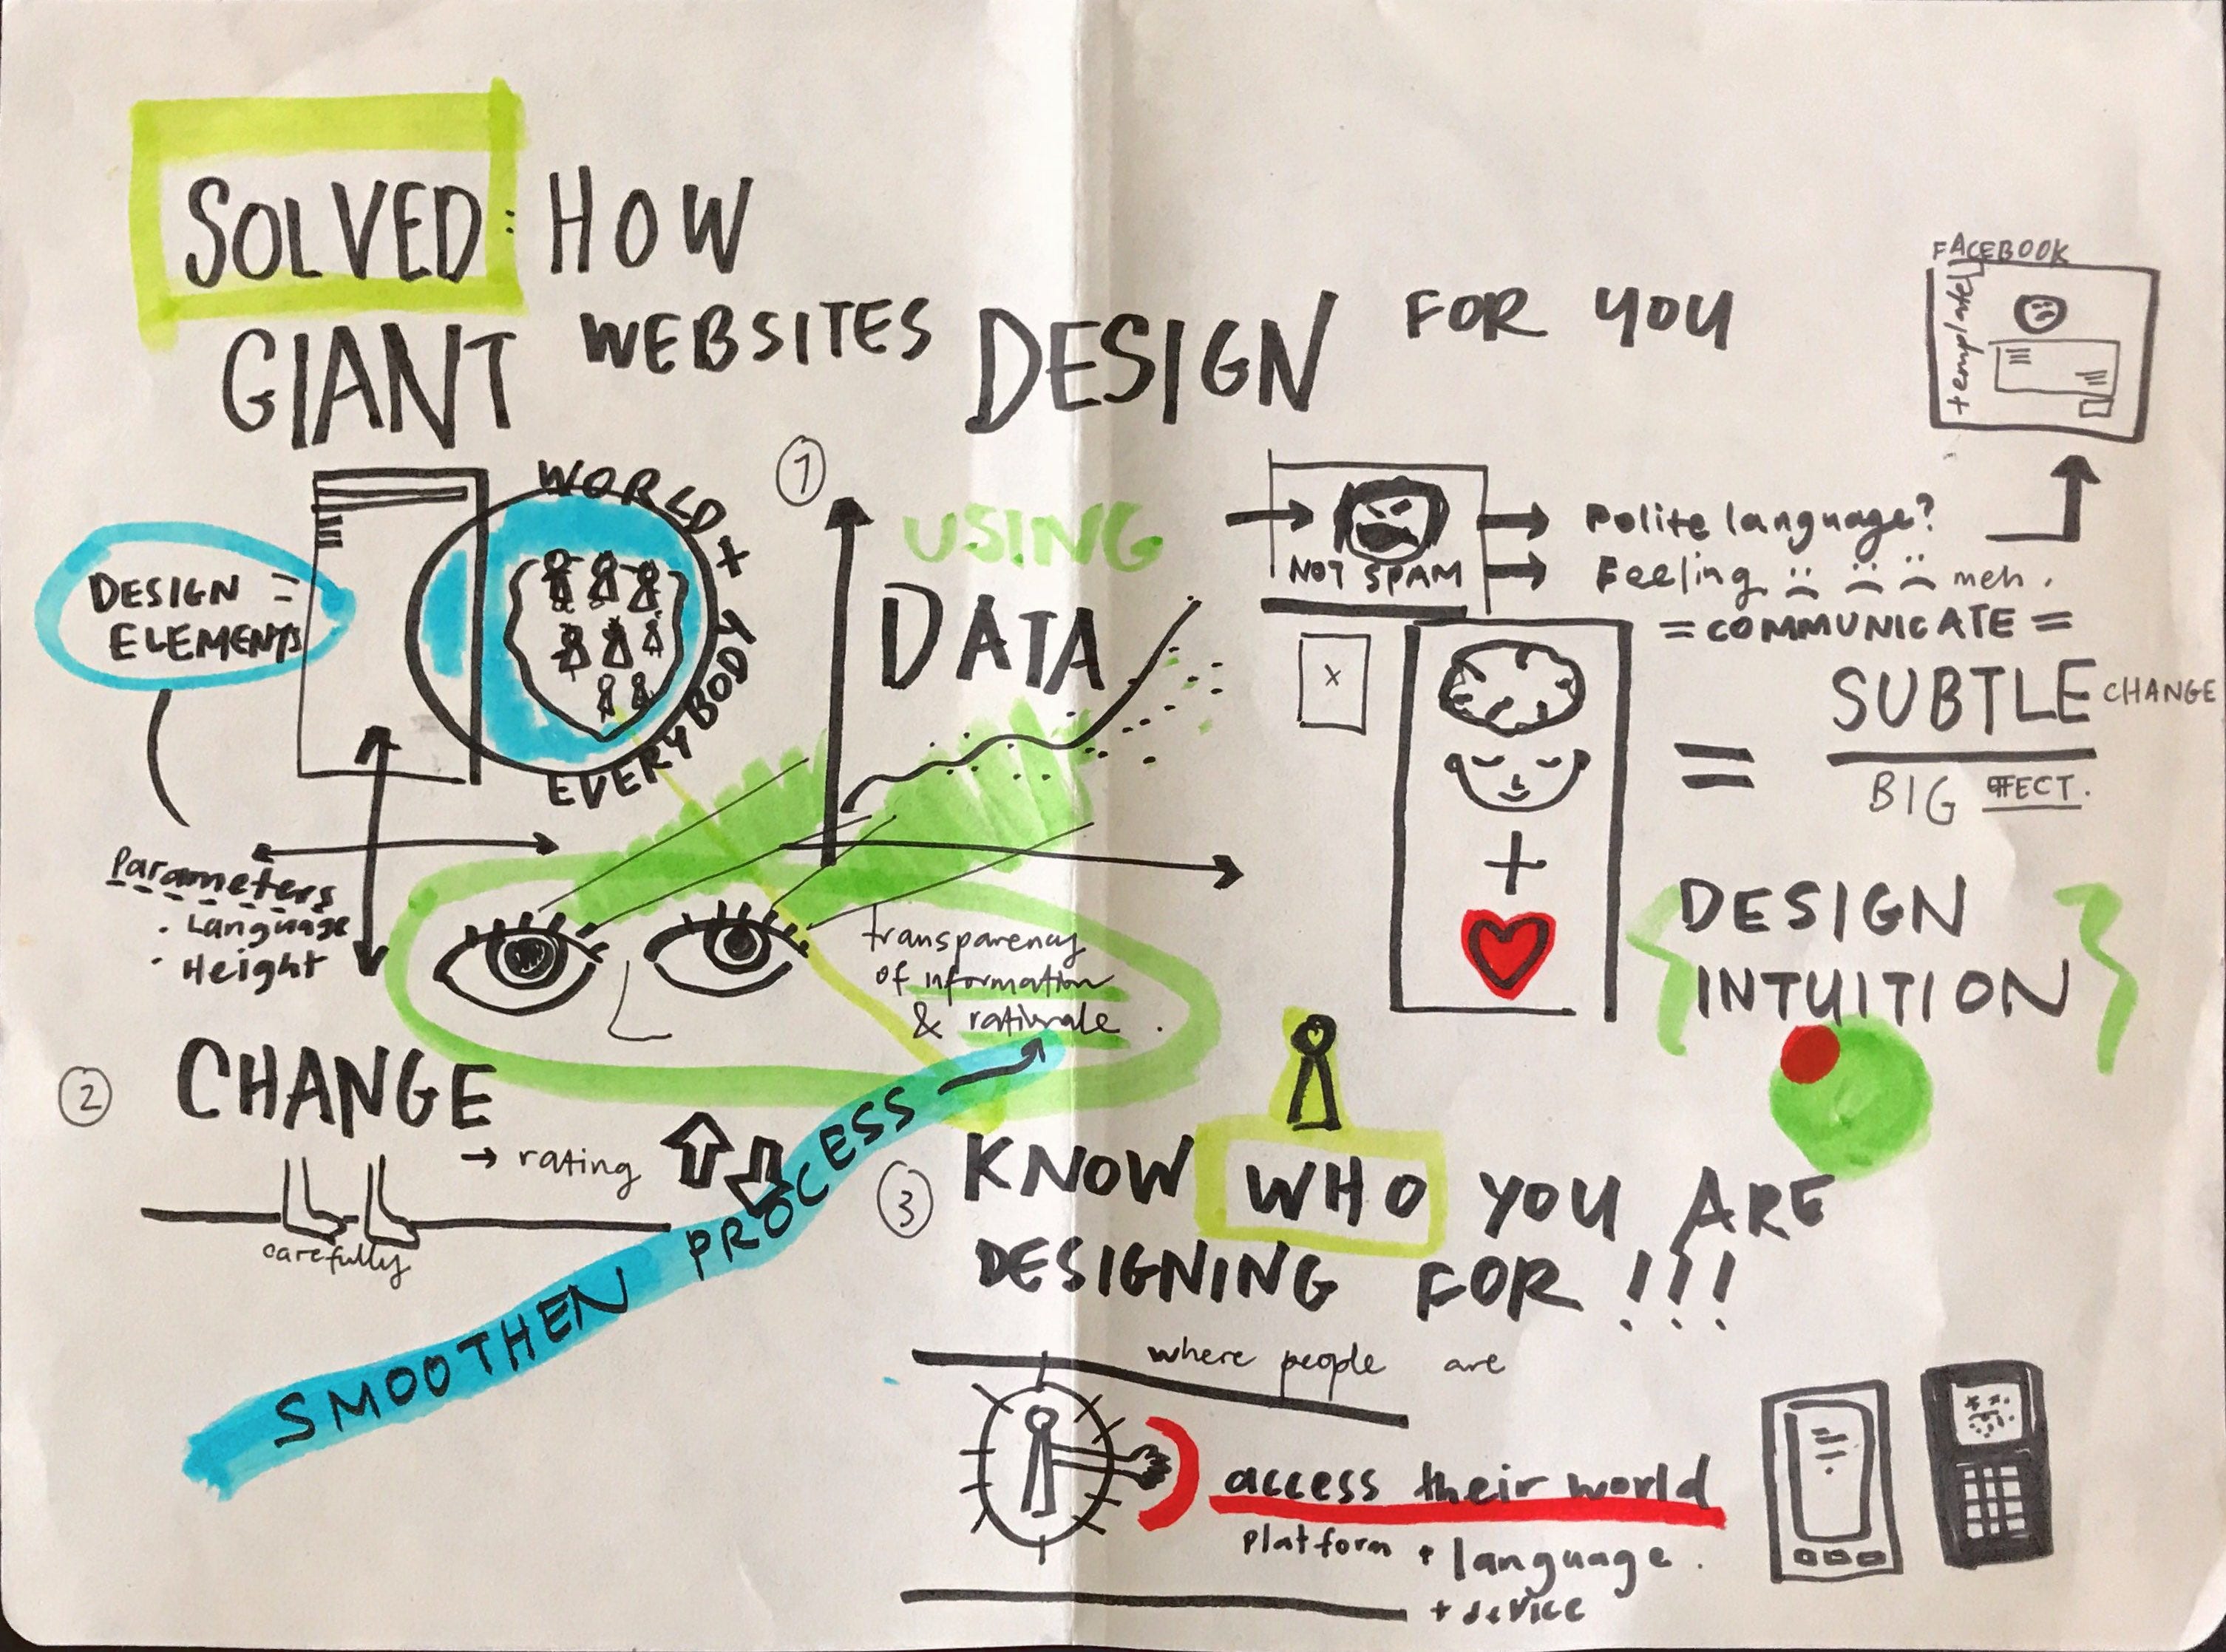 SOLVED: HOW
GIANT WEBSITES DESIGN FOR YOU
DESIGN =
ELEMENTS
WORLD +
EVERYBODY
Parameters
. Language
. Height
1
USING
DATA
NOT SPAM
Polite language?
Feeling meh.
= COMMUNICATE =
FACEBOOK
template
X
+
=
SUBTLE CHANGE
BIG EFFECT.
{ DESIGN
INTUITION }
transparency
of information
& rationale.
2
CHANGE
→ rating
carefully
SMOOTHEN PROCESS
3
KNOW WHO YOU ARE
DESIGNING FOR !!!
where people are
access their world
platform + language.
+ device